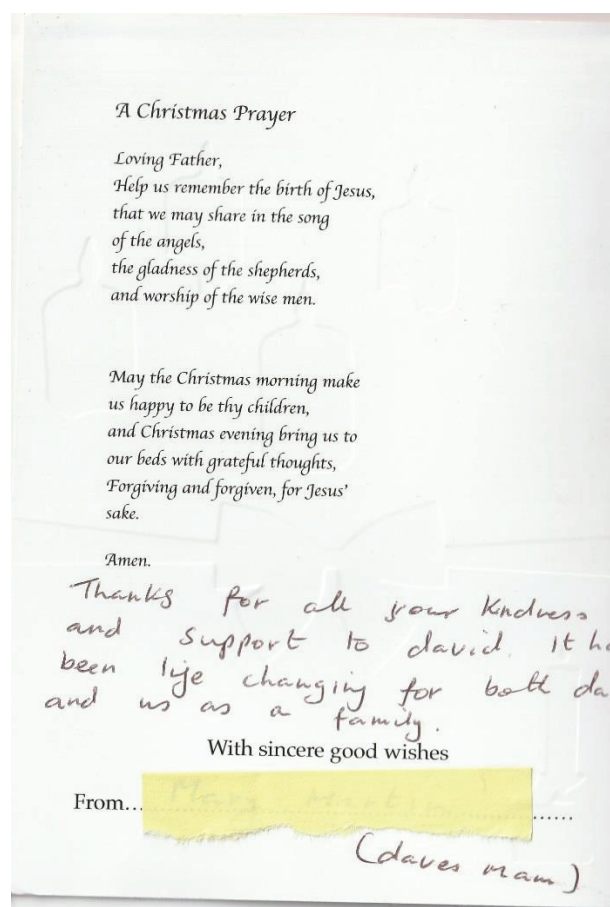 A Christmas Prayer
Loving Father,
Help us remember the birth of Jesus,
that we may share in the song
of the angels,
the gladness of the shepherds,
and worship of the wise men.
May the Christmas morning make
us happy to be thy children,
and Christmas evening bring us to
our beds with grateful thoughts,
Forgiving and forgiven, for Jesus'
sake.
Amen.
Thanks for all your kindness
and support to david. It ha
been life changing for both da
and us as a family.
With sincere good wishes
From...
(daves mam)